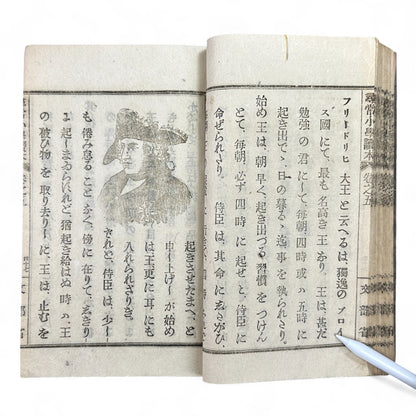 フリードリヒ 大王と云へるは、獨逸の プロイ
ス國にて、最も名高き王なり。王は、甚だ
勉強の君にして、毎朝四時或は五時に
起き出で、日の暮るゝ迄事を執られたり。
始め王は、朝早く起き出づる習慣をつけん
とて、毎朝必ず四時に起せと、侍臣に
命ぜられたり。侍臣は、其命にしたがひ、
起きさせたまへ、と
申し上げしが、始め
は王更に耳にも
入れられざりき。
されど、侍臣は、少し
も倦み怠ることなく、傍に在りて、ゐきり
に起しまゐらせけれど、猶起き給はぬ時は、王
の被ひ物を取り去りしに、王は止むを
尋常小學讀本 卷之五
文部省